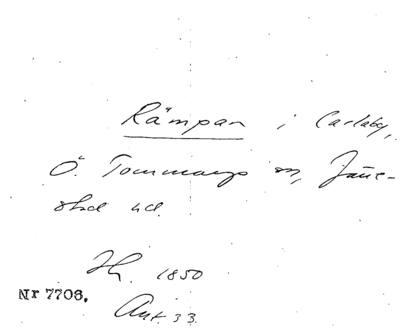 Rämpan i Carlaby,
Ö. Tommarps sn, Järre-
stad hd.
Hg. 1850
Nr 7706.
Ant. 33.